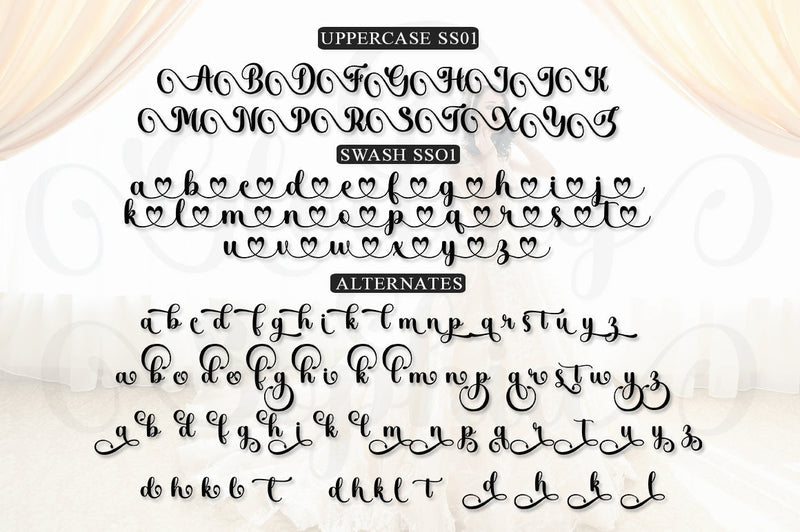 UPPERCASE SS01
A B D F G H I J K
M N P R S T X Y Z
SWASH SSO1
a b c d e f g h i j
k l m n o p q r s t
u v w x y z
ALTERNATES
a b c d f g h i k l m n p q r s t u y z
a b o d e f g h i k l m n p q r s t w y z
a b d f g h i k l m n p q r t u y z
d h k b t d h k l t d h k l